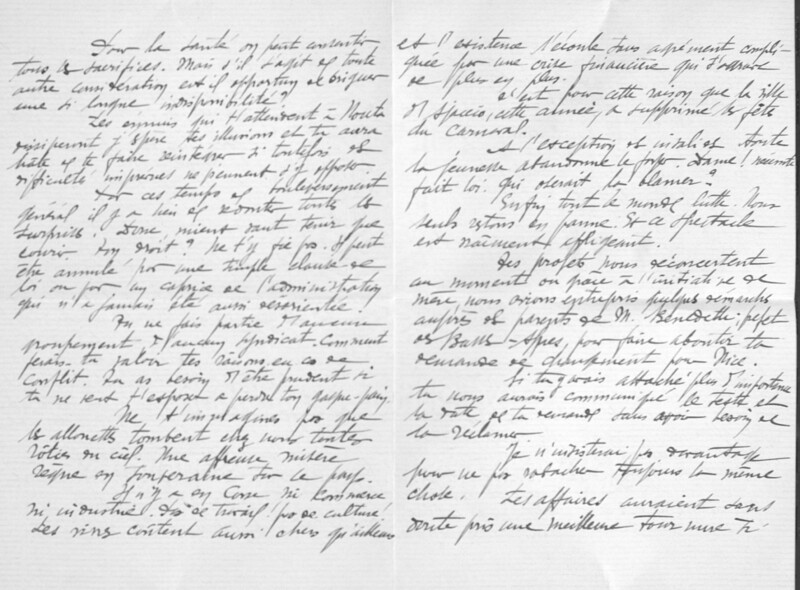 Pour la santé on peut consentir
tous les sacrifices. Mais s'il s'agit de toute
autre considération est-il opportun de briguer
une si longue indisponibilité?
Les ennuis qui t'attendent à
dissiperont j'espère tes illusions et tu auras
hâte de te faire réintégrer si toutefois des
difficultés imprévues ne peuvent s'y opposer
Par ces temps de bouleversement
général il y a lieu de redouter toutes les
surprises. Donc, mieux vaut tenir que
courir. Ton droit? Ne t'y fie pas. Il peut
être annulé par une simple clause de
loi ou par un caprice de l'administration
qui n'a jamais été aussi désorientée.
Tu ne fais partie d'aucun
groupement, d'aucun syndicat. Comment
ferais-tu valoir tes raisons en cas de
conflit. Tu as besoin d'être prudent si
tu ne veux t'exposer à perdre ton gagne-pain.
Ne t'imagines pas que
les allouettes tombent chez nous toutes
rôties du ciel. Une affreuse misère
règne en souveraine sur ce pays.
Il n'y a en Corse ni commerce
ni industrie. Pas de travail! pas de culture!
Les vivres coûtent aussi chers qu'ailleurs
et l'existence s'écoule sans agrément compli-
quée par une crise financière qui s'aggrave
de plus en plus.
C'est pour cette raison que la ville
d'Ajaccio, cette année, a supprimé les fêtes
du carnaval.
A l'exception des invalides toute
la jeunesse abandonne le foyer. Dame! nécessité
fait loi. Qui oserait la blamer?
Enfin tout le monde lutte. Nous
seuls restons en panne. Et ce spectacle
est vraiment affligeant.
Tes projets nous déconcertent
au moment où grâce à l'initiative de
mère nous avions entrepris quelques démarches
auprès des parents de M. Benedetti, préfet
des Basses-Alpes, pour faire aboutir ta
demande de changement pour Nice.
Si tu y avais attaché plus d'importance
tu nous aurais communiqué le texte et
la date de ta demande sans avoir besoin de
la réclamer.
Je n'insisterai pas davantage
pour ne pas rabacher toujours la même
chose. Les affaires auraient sans
doute pris une meilleure tournure si